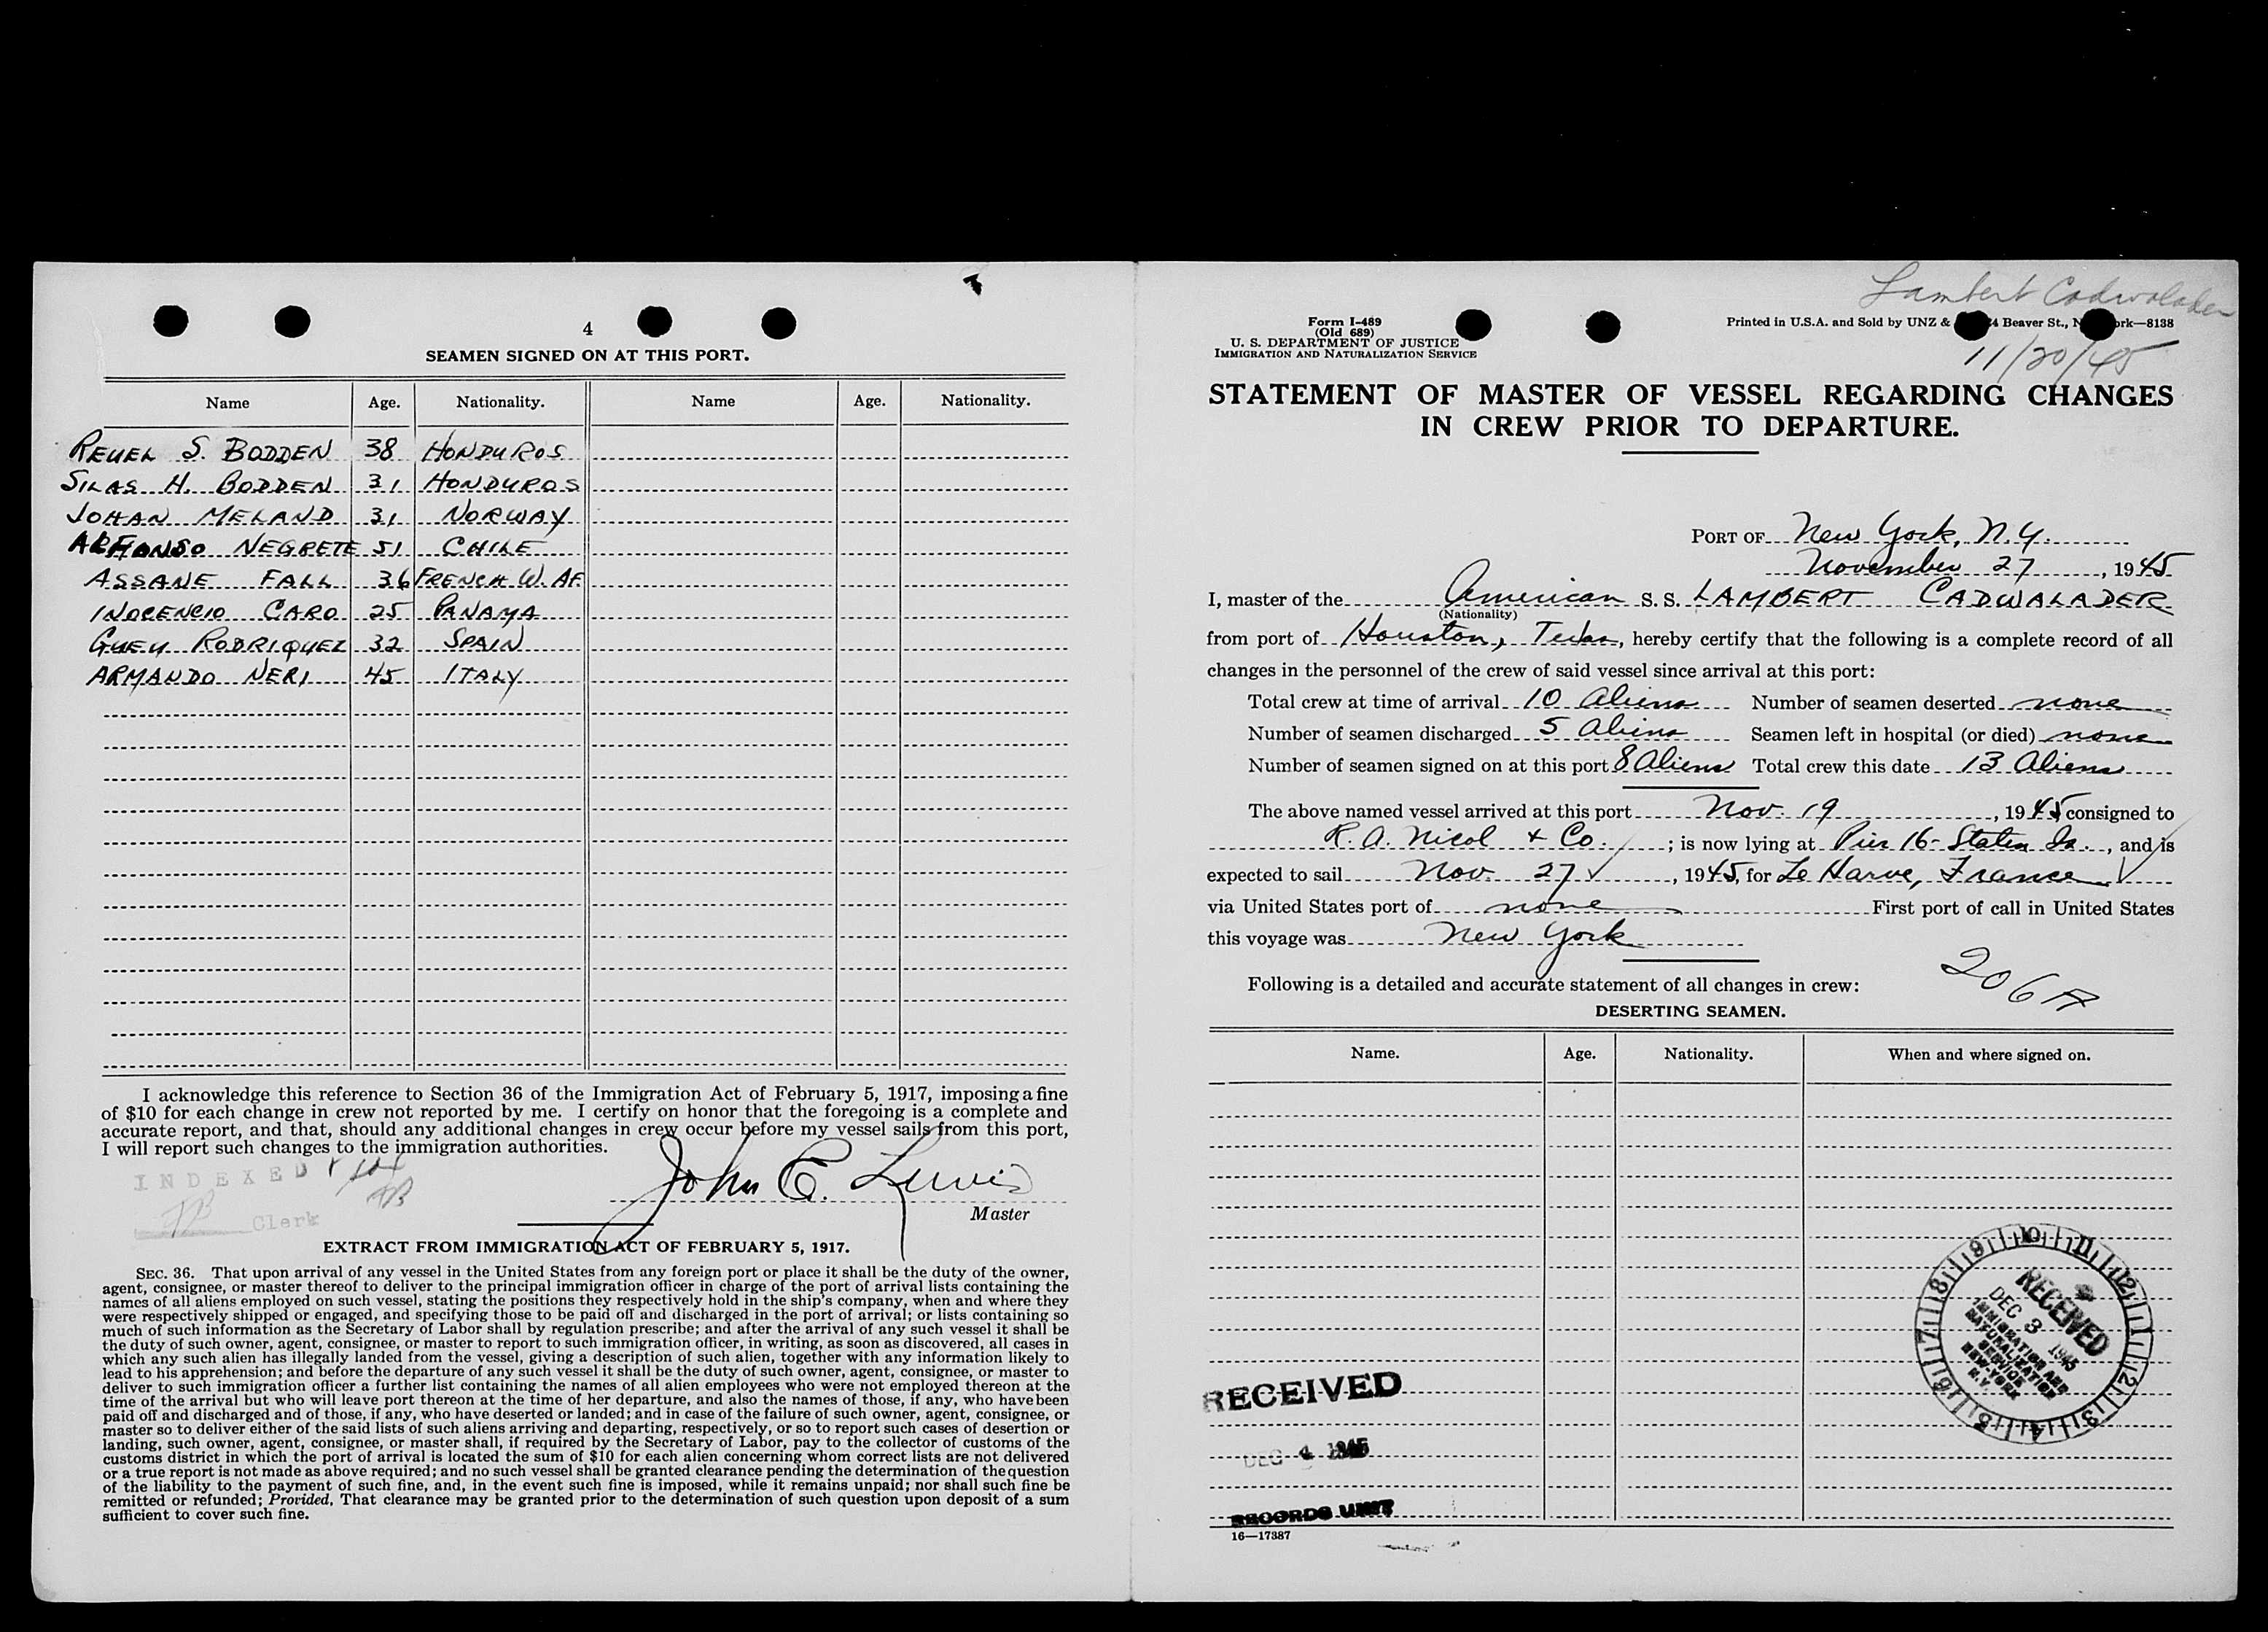 4
SEAMEN SIGNED ON AT THIS PORT.
Name Age. Nationality. Name Age. Nationality.
REUEL S. BODDEN 38 HONDUROS
SILAS H. BODDEN 31 HONDUROS
JOHAN MELAND 31 NORWAY
ALFONSO NEGRETE 51 CHILE
ASSANE FALL 36 FRENCH W. AF.
INOCENCIO CARO 25 PANAMA
RODRIQUEZ 32 SPAIN
ARMANDO NERI 45 ITALY
I acknowledge this reference to Section 36 of the Immigration Act of February 5, 1917, imposing a fine
of $10 for each change in crew not reported by me. I certify on honor that the foregoing is a complete and
accurate report, and that, should any additional changes in crew occur before my vessel sails from this port,
I will report such changes to the immigration authorities.
INDEXED
Clerk
John E. Lewis
Master
EXTRACT FROM IMMIGRATION ACT OF FEBRUARY 5, 1917.
SEC. 36. That upon arrival of any vessel in the United States from any foreign port or place it shall be the duty of the owner,
agent, consignee, or master thereof to deliver to the principal immigration officer in charge of the port of arrival lists containing the
names of all aliens employed on such vessel, stating the positions they respectively hold in the ship's company, when and where they
were respectively shipped or engaged, and specifying those to be paid off and discharged in the port of arrival; or lists containing so
much of such information as the Secretary of Labor shall by regulation prescribe; and after the arrival of any such vessel it shall be
the duty of such owner, agent, consignee, or master to report to such immigration officer, in writing, as soon as discovered, all cases in
which any such alien has illegally landed from the vessel, giving a description of such alien, together with any information likely to
lead to his apprehension; and before the departure of any such vessel it shall be the duty of such owner, agent, consignee, or master to
deliver to such immigration officer a further list containing the names of all alien employees who were not employed thereon at the
time of the arrival but who will leave port thereon at the time of her departure, and also the names of those, if any, who have been
paid off and discharged and of those, if any, who have deserted or landed; and in case of the failure of such owner, agent, consignee, or
master so to deliver either of the said lists of such aliens arriving and departing, respectively, or so to report such cases of desertion or
landing, such owner, agent, consignee, or master shall, if required by the Secretary of Labor, pay to the collector of customs of the
customs district in which the port of arrival is located the sum of $10 for each alien concerning whom correct lists are not delivered
or a true report is not made as above required; and no such vessel shall be granted clearance pending the determination of the question
of the liability to the payment of such fine, and, in the event such fine is imposed, while it remains unpaid; nor shall such fine be
remitted or refunded; Provided, That clearance may be granted prior to the determination of such question upon deposit of a sum
sufficient to cover such fine.
Lambert Cadwalader
11/20/45
Form I-489
(Old 689)
U. S. DEPARTMENT OF JUSTICE
IMMIGRATION AND NATURALIZATION SERVICE
Printed in U.S.A. and Sold by UNZ & 4 Beaver St., N ork—8138
STATEMENT OF MASTER OF VESSEL REGARDING CHANGES
IN CREW PRIOR TO DEPARTURE.
PORT OF New York, N.Y.
November 27, 1945
I, master of the American S. S. LAMBERT CADWALADER
(Nationality)
from port of Houston, Texas, hereby certify that the following is a complete record of all
changes in the personnel of the crew of said vessel since arrival at this port:
Total crew at time of arrival 10 Aliens Number of seamen deserted none
Number of seamen discharged 5 Aliens Seamen left in hospital (or died) none
Number of seamen signed on at this port 8 Aliens Total crew this date 13 Aliens
The above named vessel arrived at this port Nov. 19, 1945 consigned to
R. A. Nicol & Co.; is now lying at Pier 16- Staten Is., and is
expected to sail Nov. 27, 1945, for Le Harve, France
via United States port of none First port of call in United States
this voyage was New York
206A
Following is a detailed and accurate statement of all changes in crew:
DESERTING SEAMEN.
Name. Age. Nationality. When and where signed on.
RECEIVED
DEC 3 1945
IMMIGRATION AND
NATURALIZATION
SERVICE
NEW YORK
N.Y.
RECEIVED
DEC 4 1945
RECORDS UNIT
16—17387